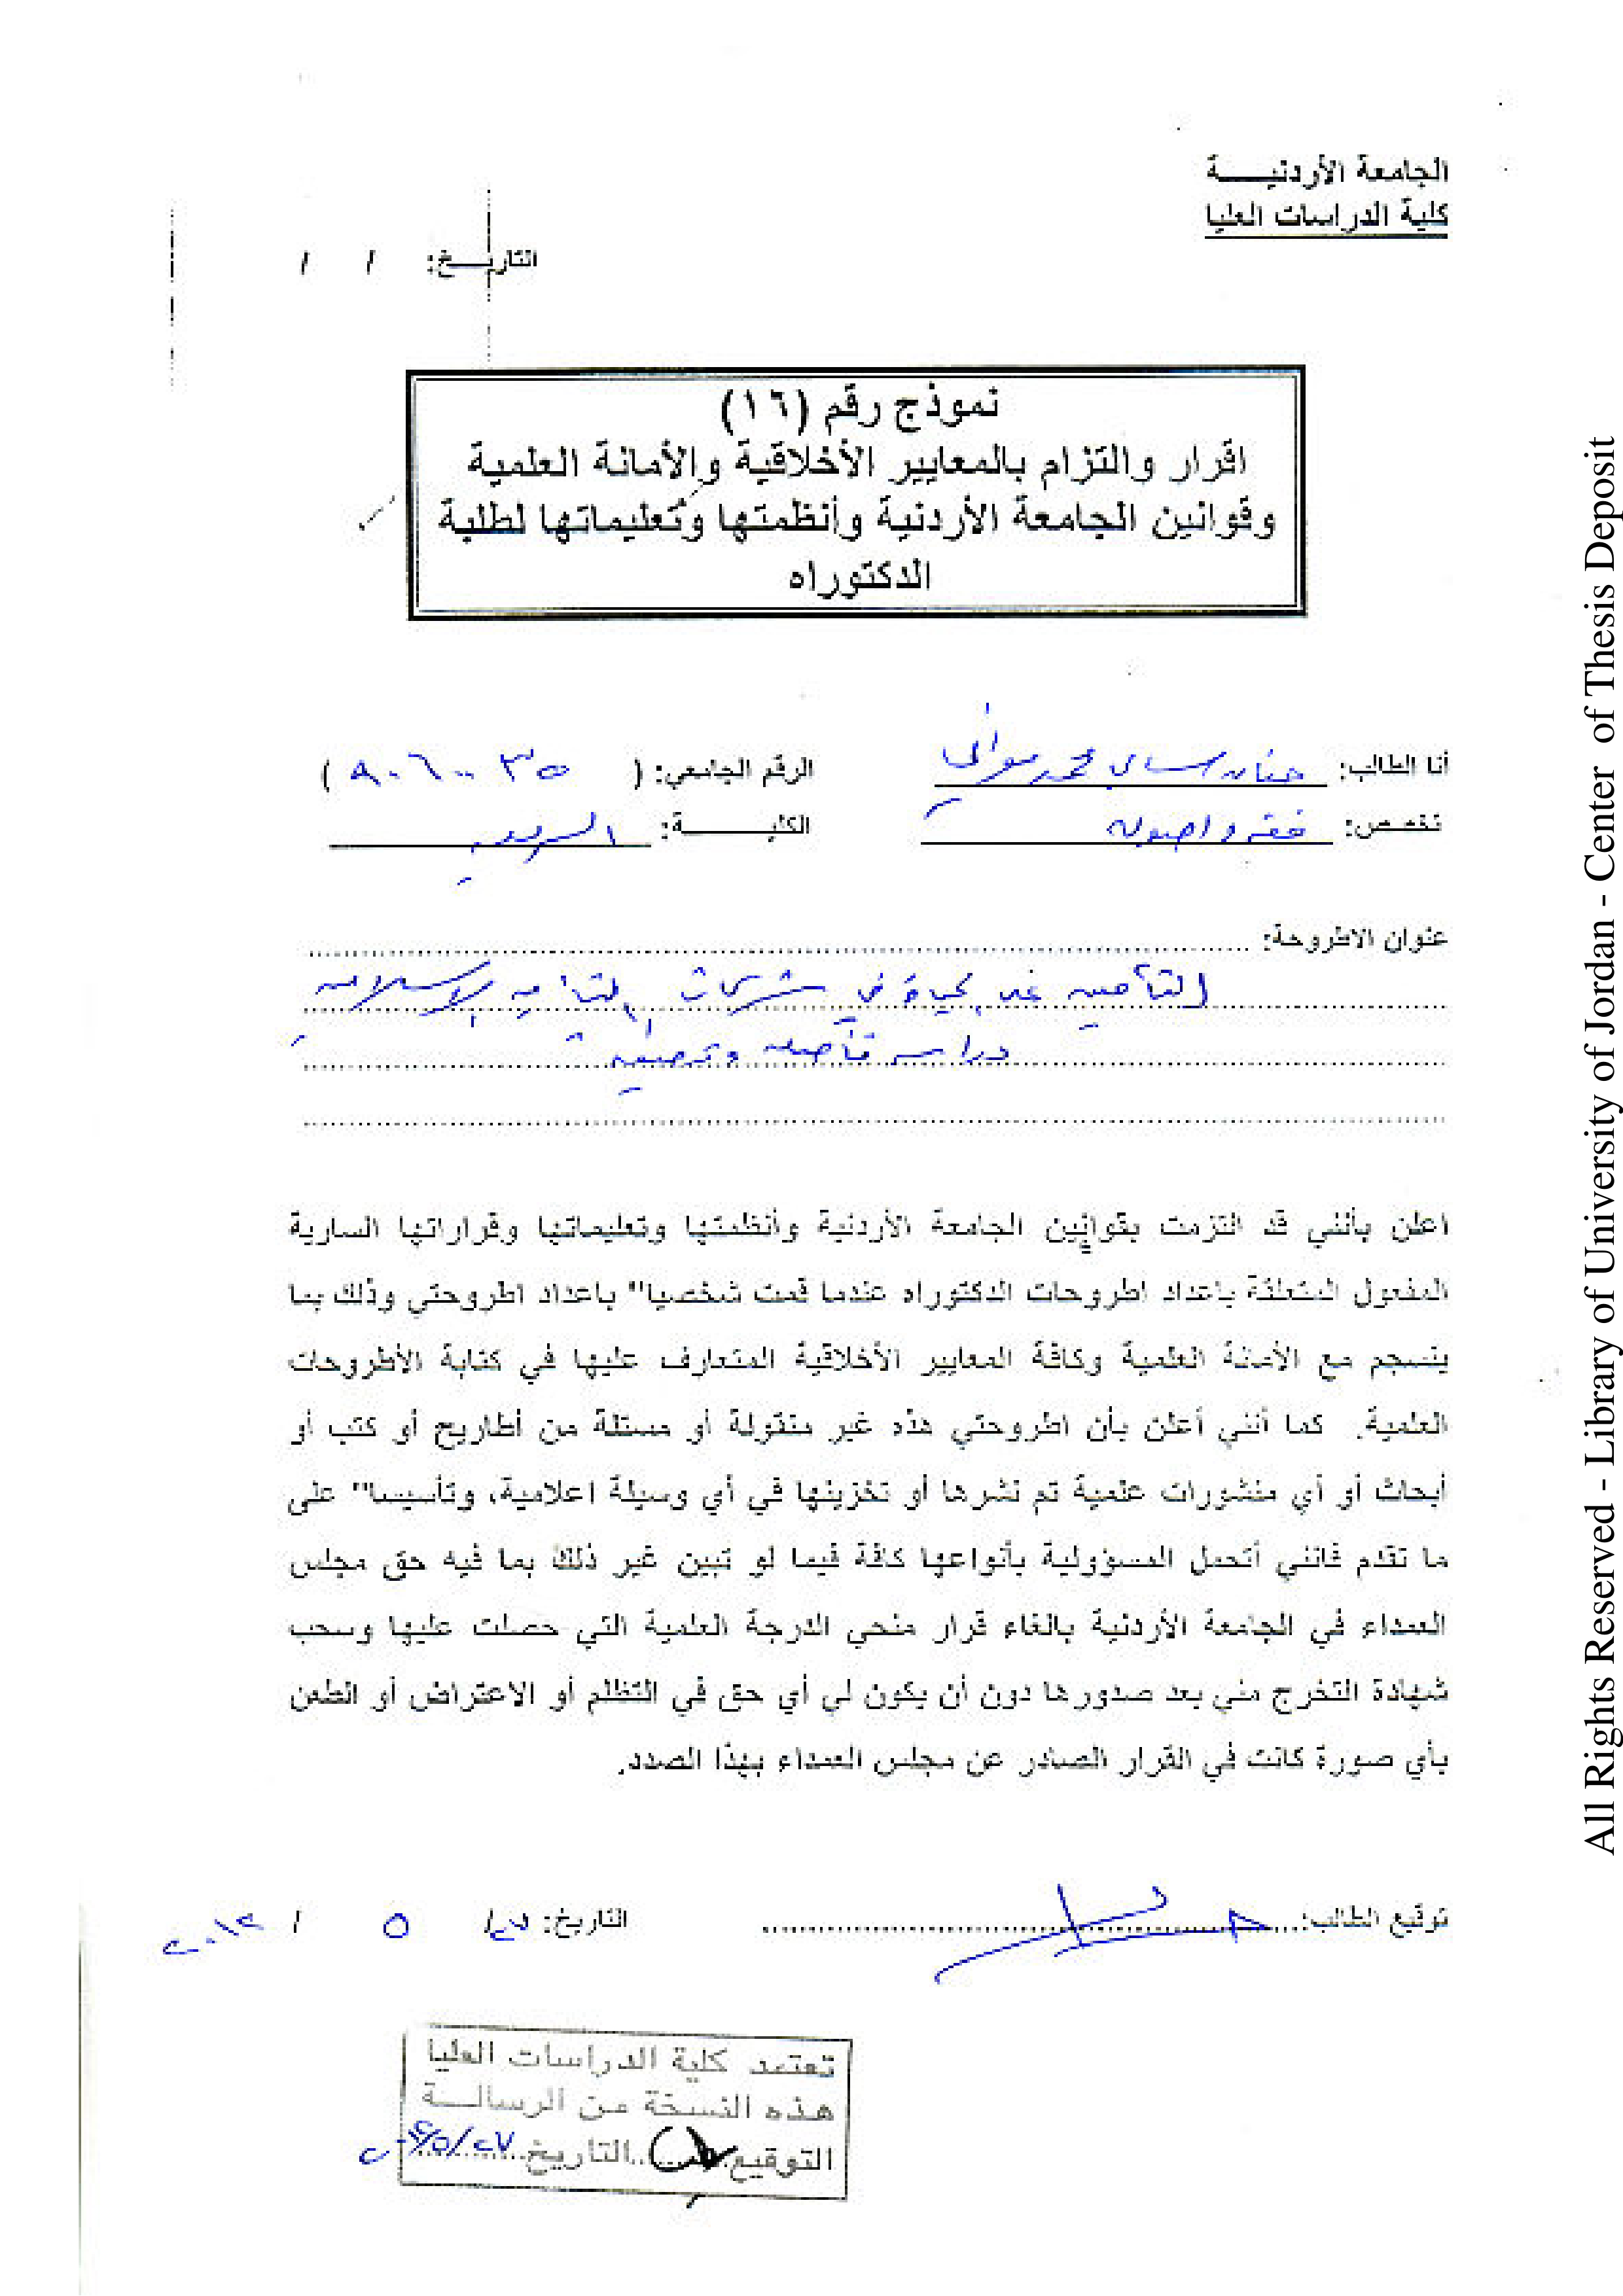 الجامعة الأردنيـــــة
كلية الدراسات العليا
التاريـــخ: / /
نموذج رقم (١٦)
اقرار والتزام بالمعايير الأخلاقية والأمانة العلمية
وقوانين الجامعة الأردنية وأنظمتها وتعليماتها لطلبة
الدكتوراه
أنا الطالب: حنان محمد الرقم الجامعي: ( )
تخصص: فقه واصوله الكليـــــــة: الشريعة
عنوان الاطروحة:
التأمين على الحياة في شركات التأمين الإسلامية
دراسة تأصيلية وتطبيقية
اعلن بأنني قد التزمت بقوانين الجامعة الأردنية وأنظمتها وتعليماتها وقراراتها السارية
المفعول المتعلقة باعداد اطروحات الدكتوراه عندما قمت شخصيا" باعداد اطروحتي وذلك بما
ينسجم مع الأمانة العلمية وكافة المعايير الأخلاقية المتعارف عليها في كتابة الأطروحات
العلمية. كما أنني أعلن بأن اطروحتي هذه غير منقولة أو مستلة من أطاريح أو كتب أو
أبحاث أو أي منشورات علمية تم نشرها أو تخزينها في أي وسيلة اعلامية، وتأسيسا" على
ما تقدم فانني أتحمل المسؤولية بأنواعها كافة فيما لو تبين غير ذلك بما فيه حق مجلس
العمداء في الجامعة الأردنية بالغاء قرار منحي الدرجة العلمية التي حصلت عليها وسحب
شهادة التخرج مني بعد صدورها دون أن يكون لي أي حق في التظلم أو الاعتراض أو الطعن
بأي صورة كانت في القرار الصادر عن مجلس العمداء بهذا الصدد.
توقيع الطالب: التاريخ: ٢٧/ ٥ / ٢٠١٢
تعتمد كلية الدراسات العليا
هذه النسخة من الرسالـــة
التوقيع......التاريخ ٢٧/٥/
All Rights Reserved - Library of University of Jordan - Center of Thesis Deposit